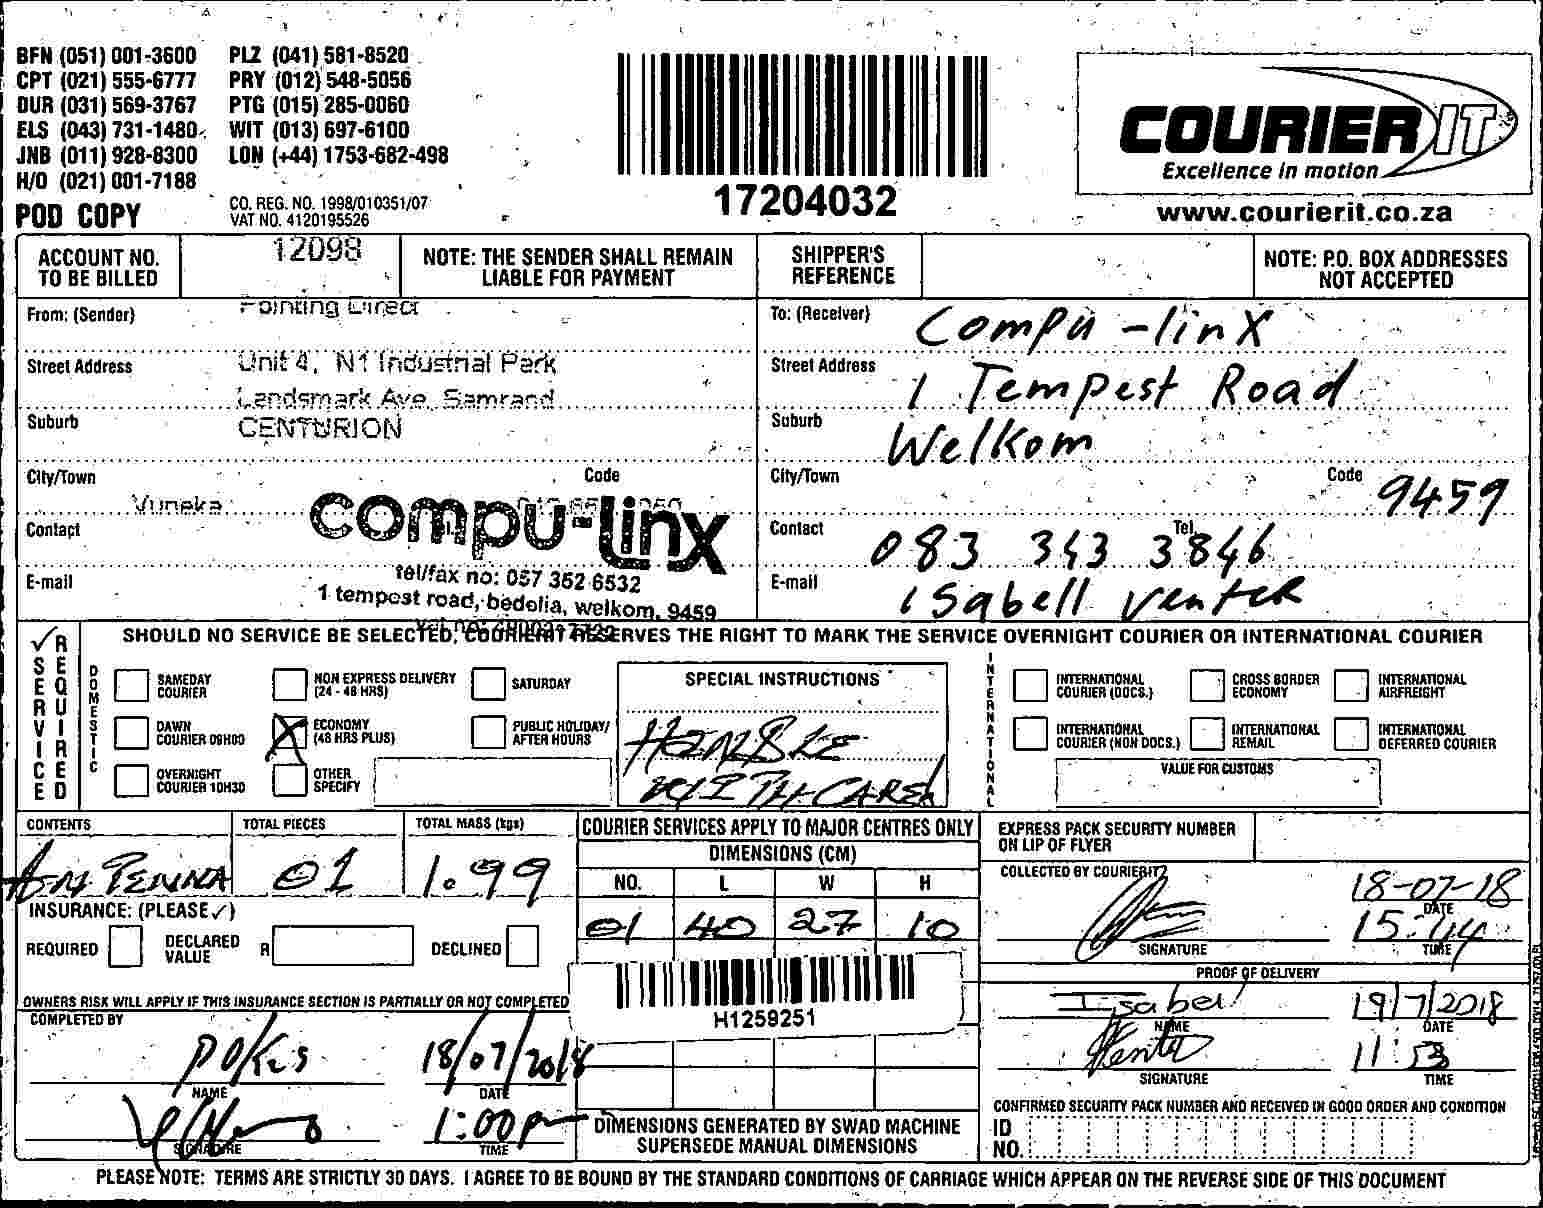 BFN (051) 001-3600 PLZ (041) 581-8520
CPT (021) 555-6777 PRY (012) 548-5056
DUR (031) 569-3767 PTG (015) 285-0060
ELS (043) 731-1480 WIT (013) 697-6100
JNB (011) 928-8300 LON (+44) 1753-682-498
H/O (021) 001-7188
POD COPY
CO. REG. NO. 1998/010351/07
VAT NO. 4120195526
17204032
COURIER IT
Excellence in motion
www.courierit.co.za
ACCOUNT NO. TO BE BILLED
12098
NOTE: THE SENDER SHALL REMAIN LIABLE FOR PAYMENT
SHIPPER'S REFERENCE
NOTE: P.O. BOX ADDRESSES NOT ACCEPTED
From: (Sender) Pointing Direct
Street Address Unit 4, N1 Industrial Park
Landsmark Ave, Samrand
Suburb CENTURION
City/Town Code
Vuneka
Contact
E-mail
compu-linx
tel/fax no: 057 352 6532
1 tempest road, bedelia, welkom, 9459
To: (Receiver) Compu-linX
Street Address 1 Tempest Road
Suburb Welkom
City/Town Code 9459
Contact Tel. 083 343 3846
E-mail isabell venter
SHOULD NO SERVICE BE SELECTED, COURIERIT RESERVES THE RIGHT TO MARK THE SERVICE OVERNIGHT COURIER OR INTERNATIONAL COURIER
SERVICE REQUIRED
DOMESTIC
SAMEDAY COURIER
NON EXPRESS DELIVERY (24 - 48 HRS)
SATURDAY
DAWN COURIER 09H00
ECONOMY (48 HRS PLUS)
PUBLIC HOLIDAY/ AFTER HOURS
OVERNIGHT COURIER 10H30
OTHER SPECIFY
SPECIAL INSTRUCTIONS
WITH CARE
INTERNATIONAL
INTERNATIONAL COURIER (DOCS.)
CROSS BORDER ECONOMY
INTERNATIONAL AIRFREIGHT
INTERNATIONAL COURIER (NON DOCS.)
INTERNATIONAL REMAIL
INTERNATIONAL DEFERRED COURIER
VALUE FOR CUSTOMS
CONTENTS
TOTAL PIECES 01
TOTAL MASS (kgs) 1.99
INSURANCE: (PLEASE ✓)
REQUIRED
DECLARED VALUE R
DECLINED
OWNERS RISK WILL APPLY IF THIS INSURANCE SECTION IS PARTIALLY OR NOT COMPLETED
COMPLETED BY
NAME
18/07/2018
DATE
SIGNATURE
1:00pm
TIME
COURIER SERVICES APPLY TO MAJOR CENTRES ONLY
DIMENSIONS (CM)
NO. L W H
01 40 27 10
H1259251
DIMENSIONS GENERATED BY SWAD MACHINE SUPERSEDE MANUAL DIMENSIONS
EXPRESS PACK SECURITY NUMBER ON LIP OF FLYER
COLLECTED BY COURIERIT
18-07-18
DATE
15:44
SIGNATURE
TIME
PROOF OF DELIVERY
Isabel
NAME
19/7/2018
DATE
Venter
SIGNATURE
11:53
TIME
CONFIRMED SECURITY PACK NUMBER AND RECEIVED IN GOOD ORDER AND CONDITION
ID NO.
PLEASE NOTE: TERMS ARE STRICTLY 30 DAYS. I AGREE TO BE BOUND BY THE STANDARD CONDITIONS OF CARRIAGE WHICH APPEAR ON THE REVERSE SIDE OF THIS DOCUMENT